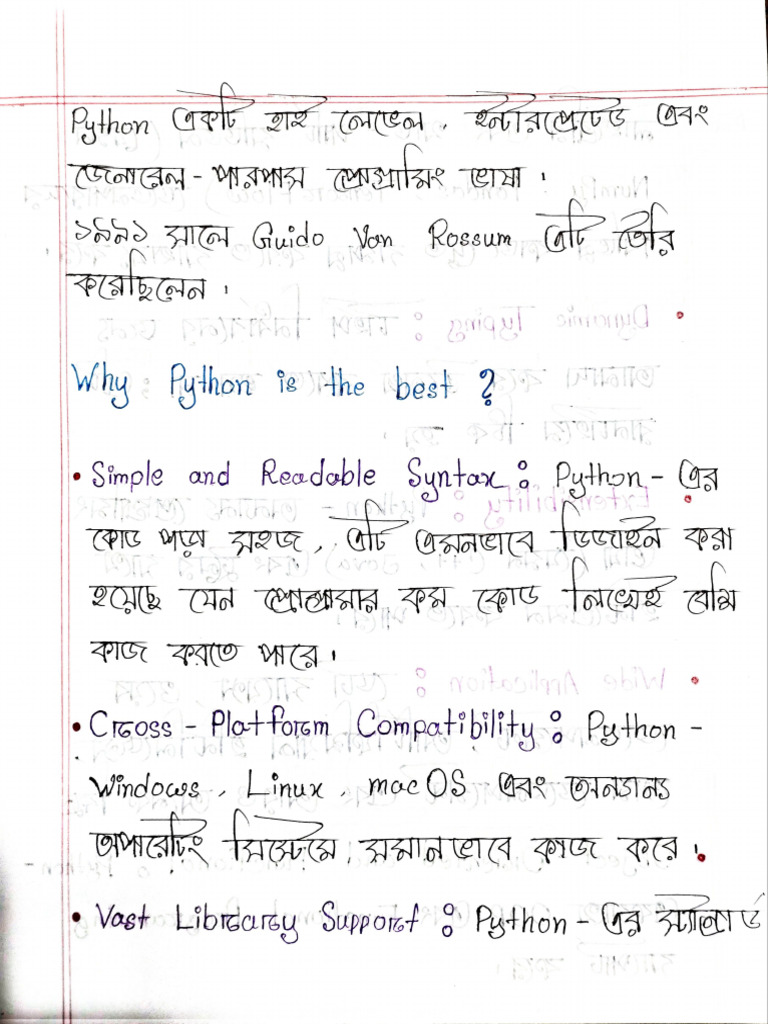 Python একটি হাই লেভেল, ইন্টারপ্রেটেড এবং
জেনারেল-পারপাস প্রোগ্রামিং ভাষা।
১৯৯১ সালে Guido Van Rossum এটি তৈরি
করেছিলেন।
Why Python is the best?
• Simple and Readable Syntax: Python-এর
কোড পড়া সহজ, এটি এমনভাবে ডিজাইন করা
হয়েছে যেন প্রোগ্রামার কম কোড লিখেই বেশি
কাজ করতে পারে।
• Cross-Platform Compatibility: Python-
Windows, Linux, macOS এবং অন্যান্য
অপারেটিং সিস্টেমে সমানভাবে কাজ করে।
• Vast Library Support: Python-এর স্ট্যান্ডার্ড